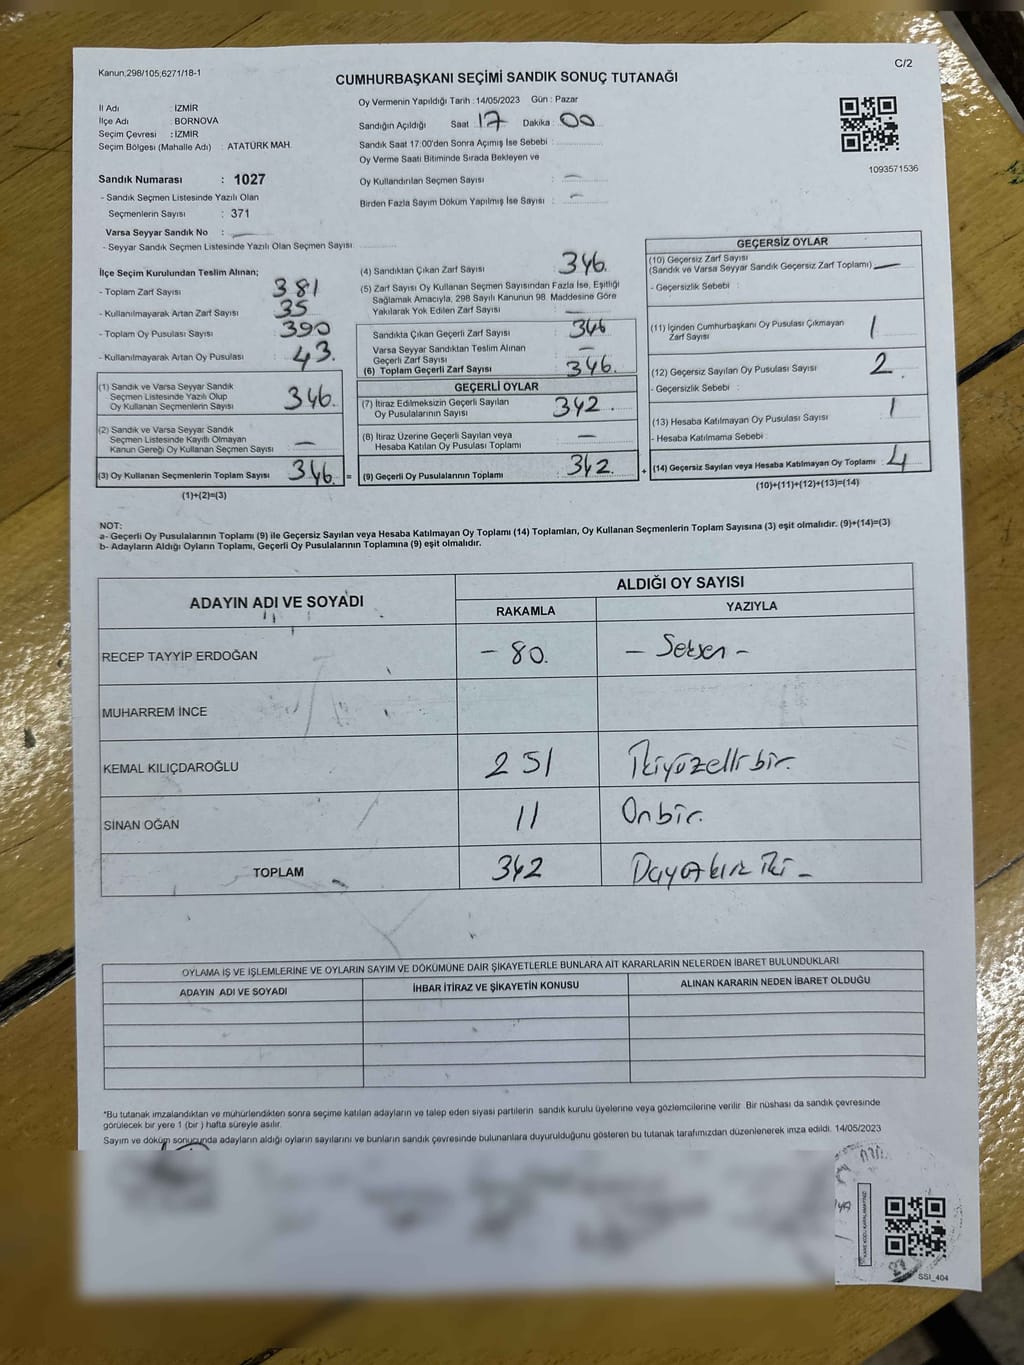 Kanun;298/105;6271/18-1
C/2
CUMHURBAŞKANI SEÇİMİ SANDIK SONUÇ TUTANAĞI
İl Adı : İZMİR
İlçe Adı : BORNOVA
Seçim Çevresi : İZMİR
Seçim Bölgesi (Mahalle Adı) : ATATÜRK MAH.
Sandık Numarası : 1027
- Sandık Seçmen Listesinde Yazılı Olan
Seçmenlerin Sayısı : 371
Varsa Seyyar Sandık No : —
- Seyyar Sandık Seçmen Listesinde Yazılı Olan Seçmen Sayısı
Oy Vermenin Yapıldığı Tarih : 14/05/2023 Gün : Pazar
Sandığın Açıldığı Saat : 17 Dakika : 00
Sandık Saat 17:00'den Sonra Açımış İse Sebebi :
Oy Verme Saati Bitiminde Sırada Bekleyen ve
Oy Kullandırılan Seçmen Sayısı : —
Birden Fazla Sayım Döküm Yapılmış İse Sayısı : —
1093571536
İlçe Seçim Kurulundan Teslim Alınan;
- Toplam Zarf Sayısı : 381
- Kullanılmayarak Artan Zarf Sayısı : 35
- Toplam Oy Pusulası Sayısı : 390
- Kullanılmayarak Artan Oy Pusulası : 43.
(1) Sandık ve Varsa Seyyar Sandık
Seçmen Listesinde Yazılı Olup
Oy Kullanan Seçmenlerin Sayısı 346.
(2) Sandık ve Varsa Seyyar Sandık
Seçmen Listesinde Kayıtlı Olmayan
Kanun Gereği Oy Kullanan Seçmen Sayısı —
(3) Oy Kullanan Seçmenlerin Toplam Sayısı 346. =
(1)+(2)=(3)
(4) Sandıktan Çıkan Zarf Sayısı : 346.
(5) Zarf Sayısı Oy Kullanan Seçmen Sayısından Fazla İse, Eşitliği
Sağlamak Amacıyla, 298 Sayılı Kanunun 98. Maddesine Göre
Yakılarak Yok Edilen Zarf Sayısı : —
Sandıkta Çıkan Geçerli Zarf Sayısı : 346
Varsa Seyyar Sandıktan Teslim Alınan
Geçerli Zarf Sayısı : —
(6) Toplam Geçerli Zarf Sayısı : 346.
GEÇERLİ OYLAR
(7) İtiraz Edilmeksizin Geçerli Sayılan
Oy Pusulalarının Sayısı : 342.
(8) İtiraz Üzerine Geçerli Sayılan veya
Hesaba Katılan Oy Pusulası Toplamı : —
(9) Geçerli Oy Pusulalarının Toplamı : 342. +
GEÇERSİZ OYLAR
(10) Geçersiz Zarf Sayısı
(Sandık ve Varsa Seyyar Sandık Geçersiz Zarf Toplamı) —
- Geçersizlik Sebebi :
(11) İçinden Cumhurbaşkanı Oy Pusulası Çıkmayan
Zarf Sayısı 1
(12) Geçersiz Sayılan Oy Pusulası Sayısı : 2.
- Geçersizlik Sebebi :
(13) Hesaba Katılmayan Oy Pusulası Sayısı : 1
- Hesaba Katılmama Sebebi :
(14) Geçersiz Sayılan veya Hesaba Katılmayan Oy Toplamı : 4
(10)+(11)+(12)+(13)=(14)
NOT:
a- Geçerli Oy Pusulalarının Toplamı (9) ile Geçersiz Sayılan veya Hesaba Katılmayan Oy Toplamı (14) Toplamları, Oy Kullanan Seçmenlerin Toplam Sayısına (3) eşit olmalıdır. (9)+(14)=(3)
b- Adayların Aldığı Oyların Toplamı, Geçerli Oy Pusulalarının Toplamına (9) eşit olmalıdır.
ADAYIN ADI VE SOYADI ALDIĞI OY SAYISI
RAKAMLA YAZIYLA
RECEP TAYYİP ERDOĞAN – 80. – Seksen –
MUHARREM İNCE
KEMAL KILIÇDAROĞLU 251 İkiyüzellibir.
SİNAN OĞAN 11 Onbir.
TOPLAM 342 iki –
OYLAMA İŞ VE İŞLEMLERİNE VE OYLARIN SAYIM VE DÖKÜMÜNE DAİR ŞİKAYETLERLE BUNLARA AİT KARARLARIN NELERDEN İBARET BULUNDUKLARI
ADAYIN ADI VE SOYADI İHBAR İTİRAZ VE ŞİKAYETİN KONUSU ALINAN KARARIN NEDEN İBARET OLDUĞU
*Bu tutanak imzalandıktan ve mühürlendikten sonra seçime katılan adayların ve talep eden siyasi partilerin sandık kurulu üyelerine veya gözlemcilerine verilir. Bir nüshası da sandık çevresinde
görülecek bir yere 1 (bir) hafta süreyle asılır.
Sayım ve döküm sonucunda adayların aldığı oyların sayılarını ve bunların sandık çevresinde bulunanlara duyurulduğunu gösteren bu tutanak tarafımızdan düzenlenerek imza edildi. 14/05/2023
KARE KODU KARALAMAYINIZ
SSI_404